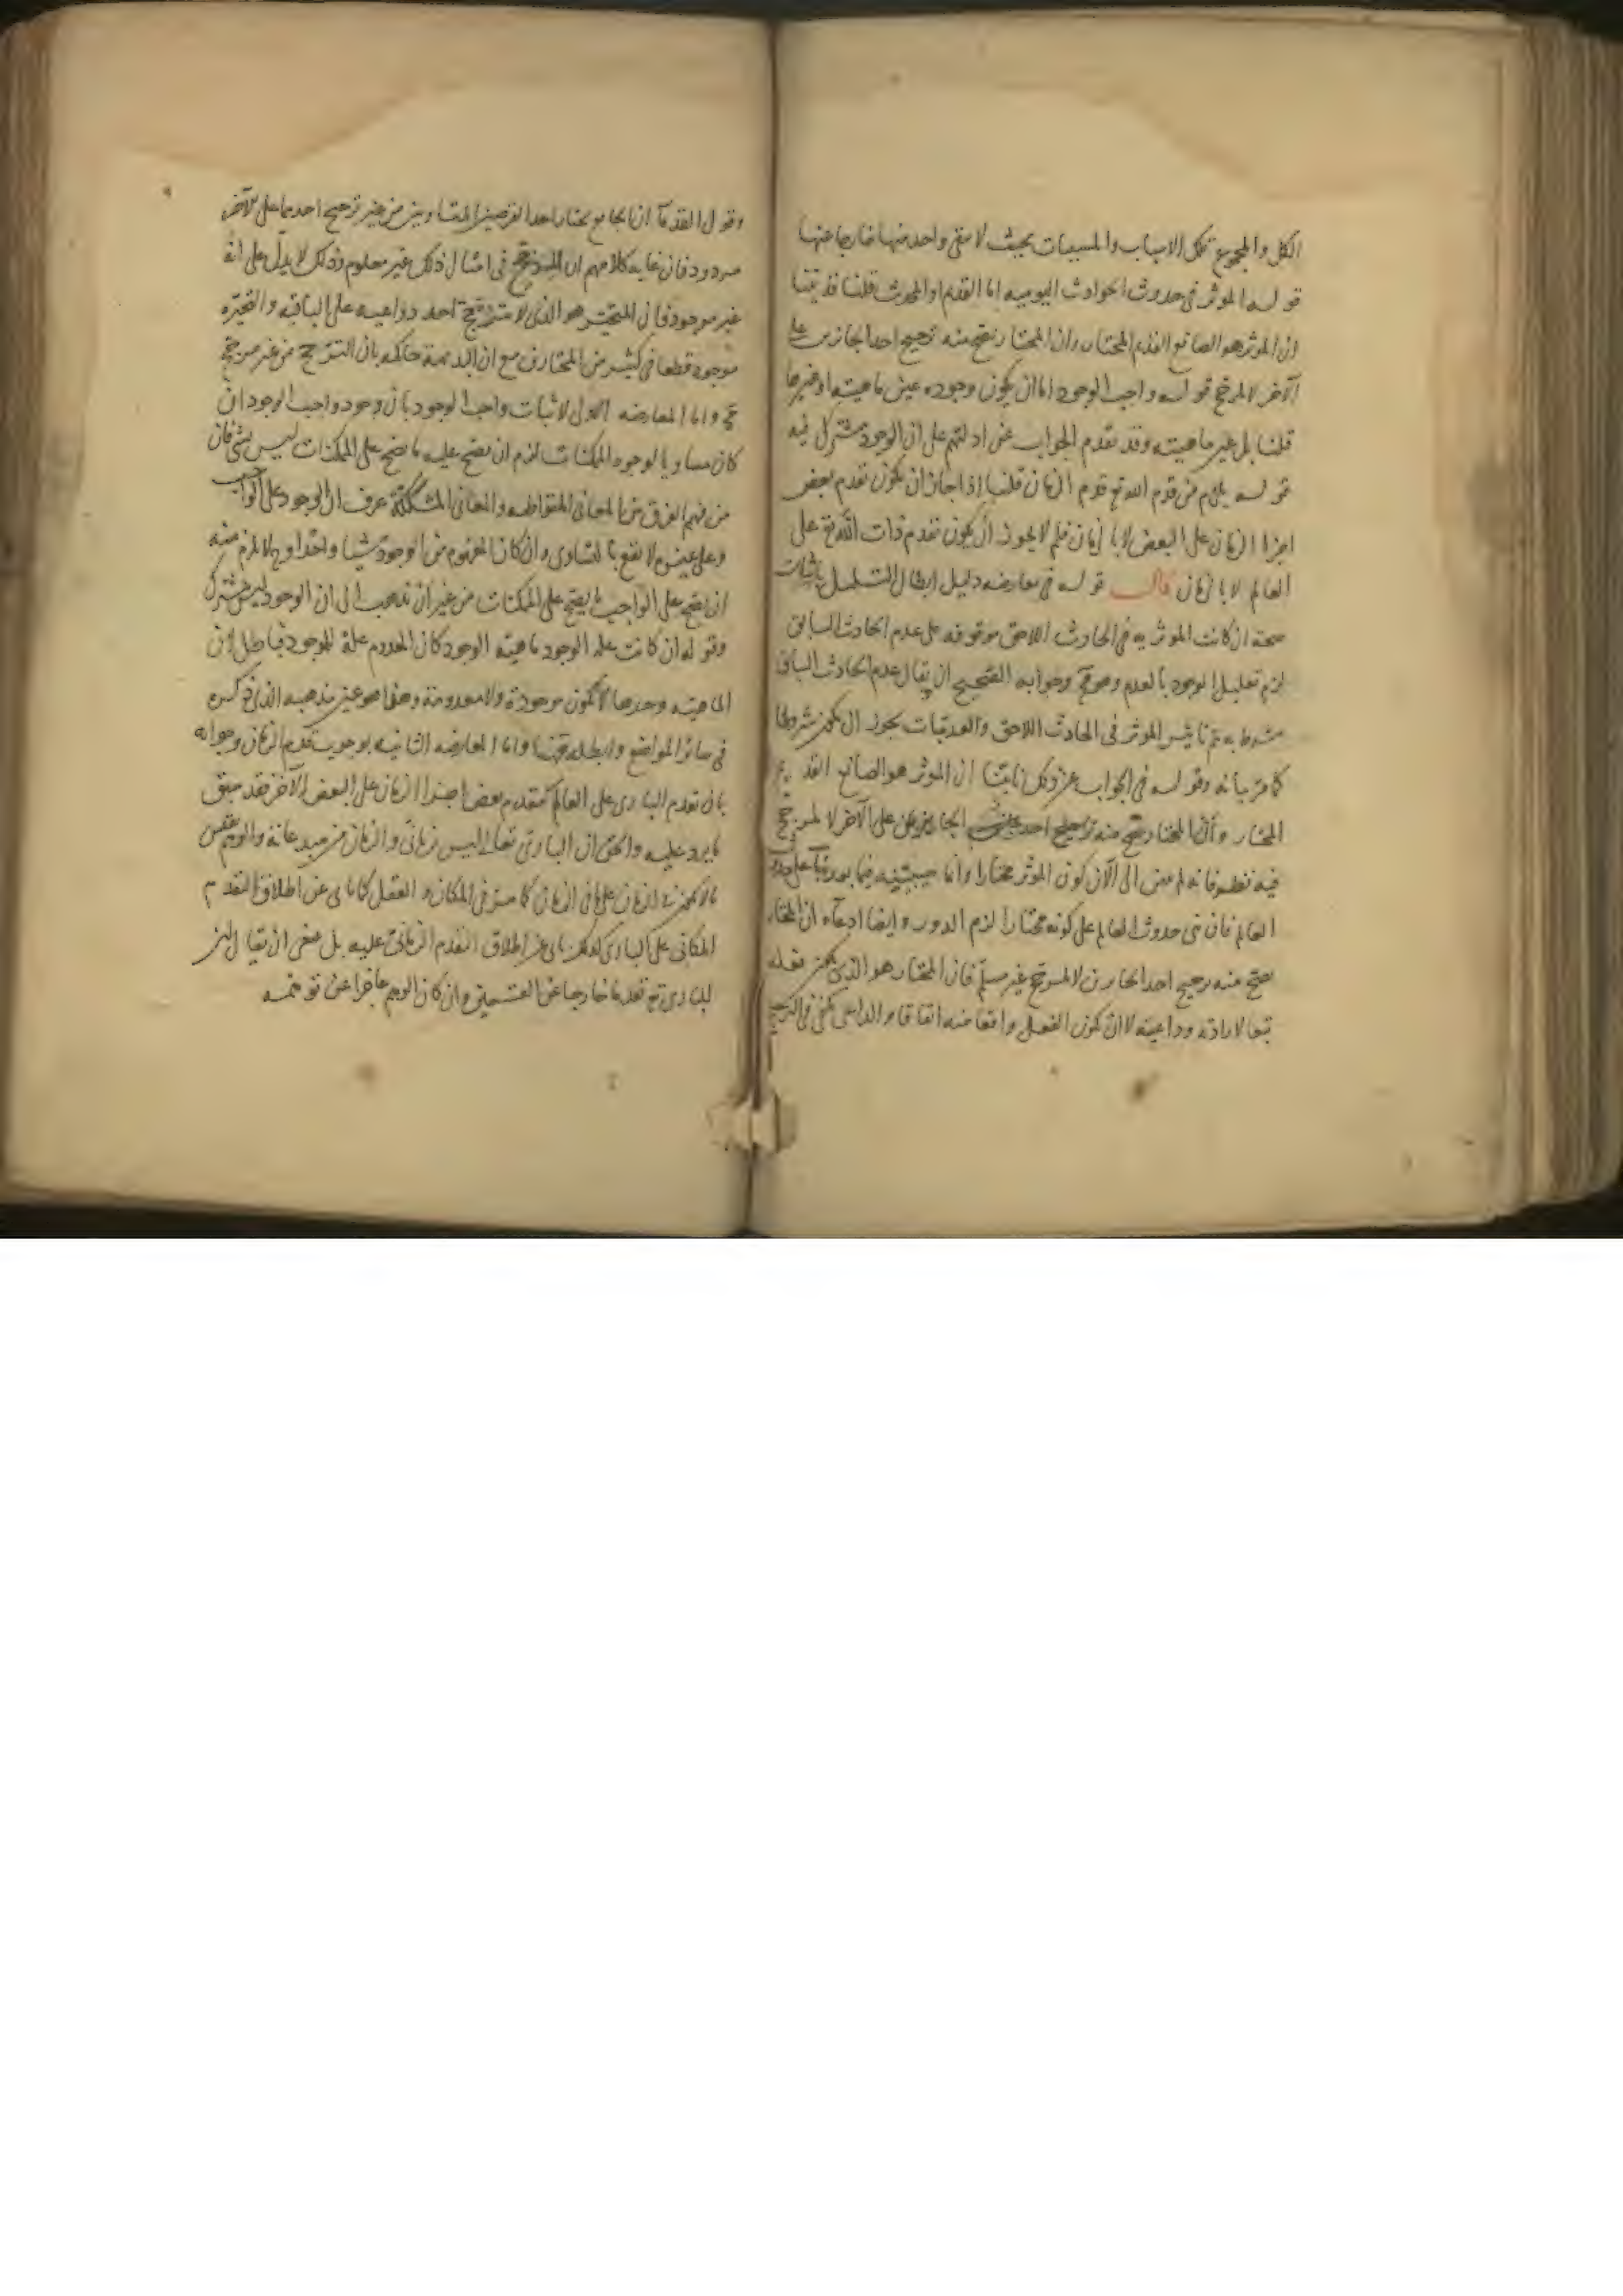 الكل والمجموع تلك الاسباب والمسببات بحيث لا يبقى واحد منها خارجا عنها
قوله الموثر فى حدوث الحوادث اليوميه اما القديم او المحدث قلنا قد بينا
ان الموثر هو الصانع القديم المختار وان المختار يصح منه ترجيح احد الجائزين على
الآخر لا لمرجح قوله واجب الوجود اما ان يكون وجوده عين ماهيته او غيرها
قلنا بل غير ماهيته وقد تقدم الجواب عن ادلتهم على ان الوجود مشترك فيه
قوله يلزم من قدم الله تع قدم الزمان قلنا اذا جاز ان يكون تقدم بعض
اجزا الزمان على البعض لا بالزمان فلم لا يجوز ان يكون تقدم ذات الله تع على
العالم لا بالزمان قال قوله فى معارضه دليل ابطال التسلسل باثبات
صحته ان كانت الموثريه فى الحادث اللاحق موقوفه على عدم الحادث السابق
لزم تعليل الوجود بالعدم وهو مح وجوابه الصحيح ان يقال عدم الحادث السابق
مشروط به تم تاثير الموثر فى الحادث اللاحق والعدميات يجوز ان يكون شروطا
كما مر بيانه وقوله فى الجواب عن ذلك انا بينا ان الموثر هو الصانع القديم
المختار وأن المختار يصح منه ترجيح احد الجايزين على الآخر لا لمرجح
فيه نظر فانه لم يبين الى الآن كون الموثر مختارا وانما سيبينه فيما بعد بنآء على حدوث
العالم فان بنى حدوث العالم على كونه مختارا لزم الدور وايضا ادعآء ان المختار
يصح منه ترجيح احد الجايزين لا لمرجح غير مسلم فان المختار هو الذى يكون فعله
تبعا لارادته وداعيته لا ان يكون الفعل واقعا منه اتفاقا والداعى يكفى فى الترجيح
وقول القدمآ ان الجايع يختار احد القرصين المتساويين من غير ترجيح احدهما على الآخر
مردود فان غايه كلامهم ان المرجح فى امثال ذلك غير معلوم وذلك لا يدل على انه
غير موجود فان المتحير هو الذى لا يترجح احد دواعيه على الباقيه والتحير
موجود قطعا فى كثير من المختارين مع ان البديهة حاكمه بان الترجح من غير مرجح
مح واما المعارضه الاولى لاثبات واجب الوجود بان وجود واجب الوجود ان
كان مساويا لوجود الممكنات لزم ان يصح عليه ما يصح على الممكنات ليس بشى فان
من فهم الفرق بين المعانى المتواطيه والمعانى المشككة عرف ان الوجود على الواجب
وعلى غيره لا يقع بالتساوى وان كان المفهوم من الوجود شيئا واحدا و ح لا يلزم منه
ان يصح على الواجب ما يصح على الممكنات من غير ان نذهب الى ان الوجود ليس بمشترك
وقوله ان كانت علة الوجود ماهيته الوجود كان المعدوم علة للموجود فباطل لان
الماهيته وحدها لا تكون موجودة ولا معدومة وهذا هو عين مذهبه الذى ذكره
فى سائر المواضع وابطله ههنا واما المعارضه الثانيه بوجوب قدم الزمان وجوابه
بان تقدم البارى على العالم كتقدم بعض اجزا الزمان على البعض الآخر فقد سبق
ما يرد عليه والحق ان البارى تعالى ليس بزمانى والزمان من مبدعاته والوهم يقيس
ما لا يكون فى الزمان على ما فى الزمان كما مر فى المكان و العقل كما يابى عن اطلاق التقدم
المكانى على البارى كذلك يابى عن اطلاق التقدم الزمانى عليه بل ينبغى ان يقال ان
للبارى تع تقدما خارجا عن القسمين وان كان الوهم عاجزا عن توهمه